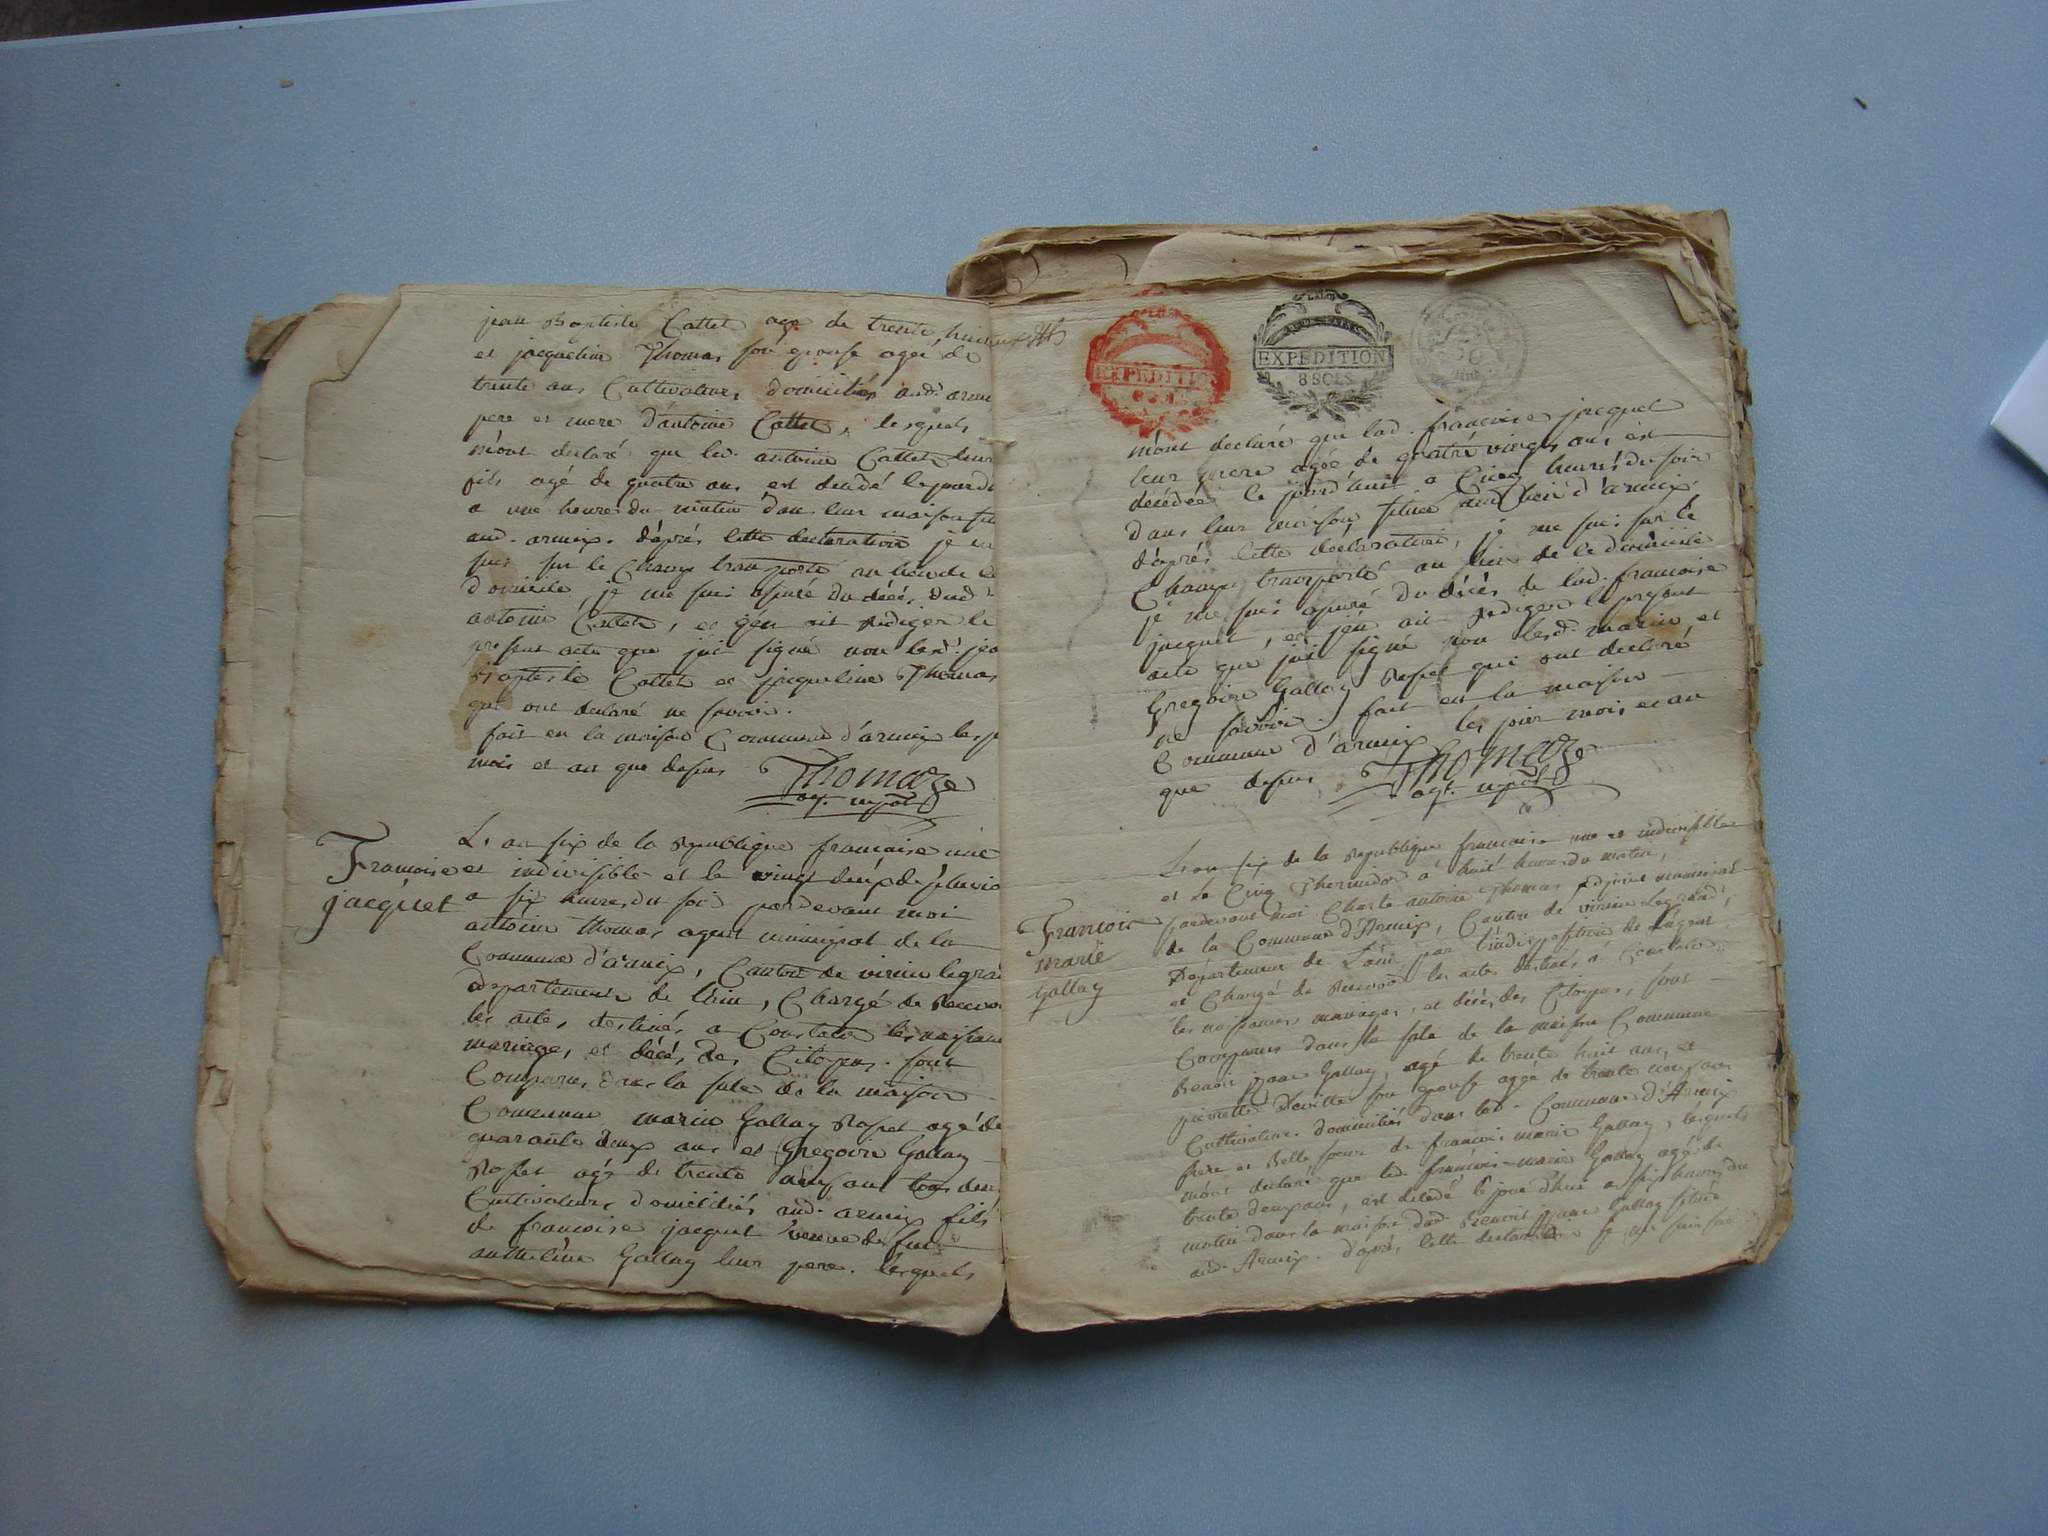 jean Baptiste Cattet age de trente huit ans
et jacqueline Thomas son epouse agée de
trente ans Cultivateurs domiciliés aud. arm
pere et mere d'antoine Cattet, lesquels
m'ont declaré que led. antoine Cattet leur
fils agé de quatre ans est décédé le jourdu
a une heure du matin dans leur maison
aud. armix. d'après cette declaration je
suis sur le Champ transporté au lieu de
domicile, je me suis assuré du décés dud.
antoine Cattet, et j'en ait rediger le
present acte que j'ai signé non lesd. jea
Baptiste Cattet et jacqueline Thomas
qui ont declaré ne savoir.
fait en la maison Commune d'armix les
mois et an que dessus
Thomaze
agt. mpal
Francoise
jacquet
L'an six de la Republique francaise une
et indivisible et le vingt deux de pluvio
a six heures du soir pardevant moi
antoine thomas agent municipal de la
Commune d'armix, Canton de virieu legra
departement de l'ain, Chargé de Recevo
les actes, destinés a Constater les naissan
mariages, et décés, des Citoyens. sont
Comparus dans la sale de la maison
Commune marin Gallay Rosset agé de
quarante deux ans et Gregoire Gallay
Rosset agé de trente ans tous deux
Cultivateurs domiciliés aud. armix fils
de francoise jacquet veuve de feu
anthelme Gallay leur pere. lesquels
EXPEDITION
EXPEDITION
8 SOLS
m'ont declaré que lad. francoise jacquet
leur mere agée de quatre vingts ans est
décédée le jourd'hui a Cinq heures du soir
dans leur maison, située aud. lieu d'armix.
d'après cette déclaration, je me suis sur le
Champ transporté au lieu de le domicile
je me suis assuré du décés de lad. francoise
jacquet, et j'en ait rediger le present
acte que j'ai signé non lesd. marin, et
Gregoire Gallay Rosset qui ont declaré
ne savoir. fait en la maison
Commune d'armix les jour mois et an
que dessus
Thomaze
agt. mpal
François
marie
Gallay
L'an six de la Republique francaise une et indivisible
et le Cinq Thermidor a huit heures du matin,
pardevant moi Charle antoine Thomas adjoint municipal
de la Commune d'Armix, Canton de virieu Legrand,
Département de L'ain, par l'indisposition de l'agent
et Chargé de Recevoir les actes destinés a Constater
les naissances, mariages, et décés des Citoyens, sont
Comparus dans la sale de la maison Commune
Benoit Gallay, agé de trente huit ans, et
pierrette son epouse agée de trente
Cultivateurs domiciliés dans led. Commune d'Armix
frere et Belle soeur de francois marie Gallay, lesquels
m'ont declaré que led. francois-marie Gallay agé de
trente deux ans, est décédé le jourd'hui a six heures du
matin dans la maison dud. Benoit Gallay située
aud. Armix. d'après cette declaration je me suis sur